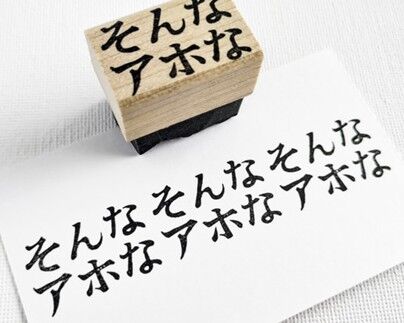 そんな
アホな
そんな そんな そんな
アホな アホな アホな